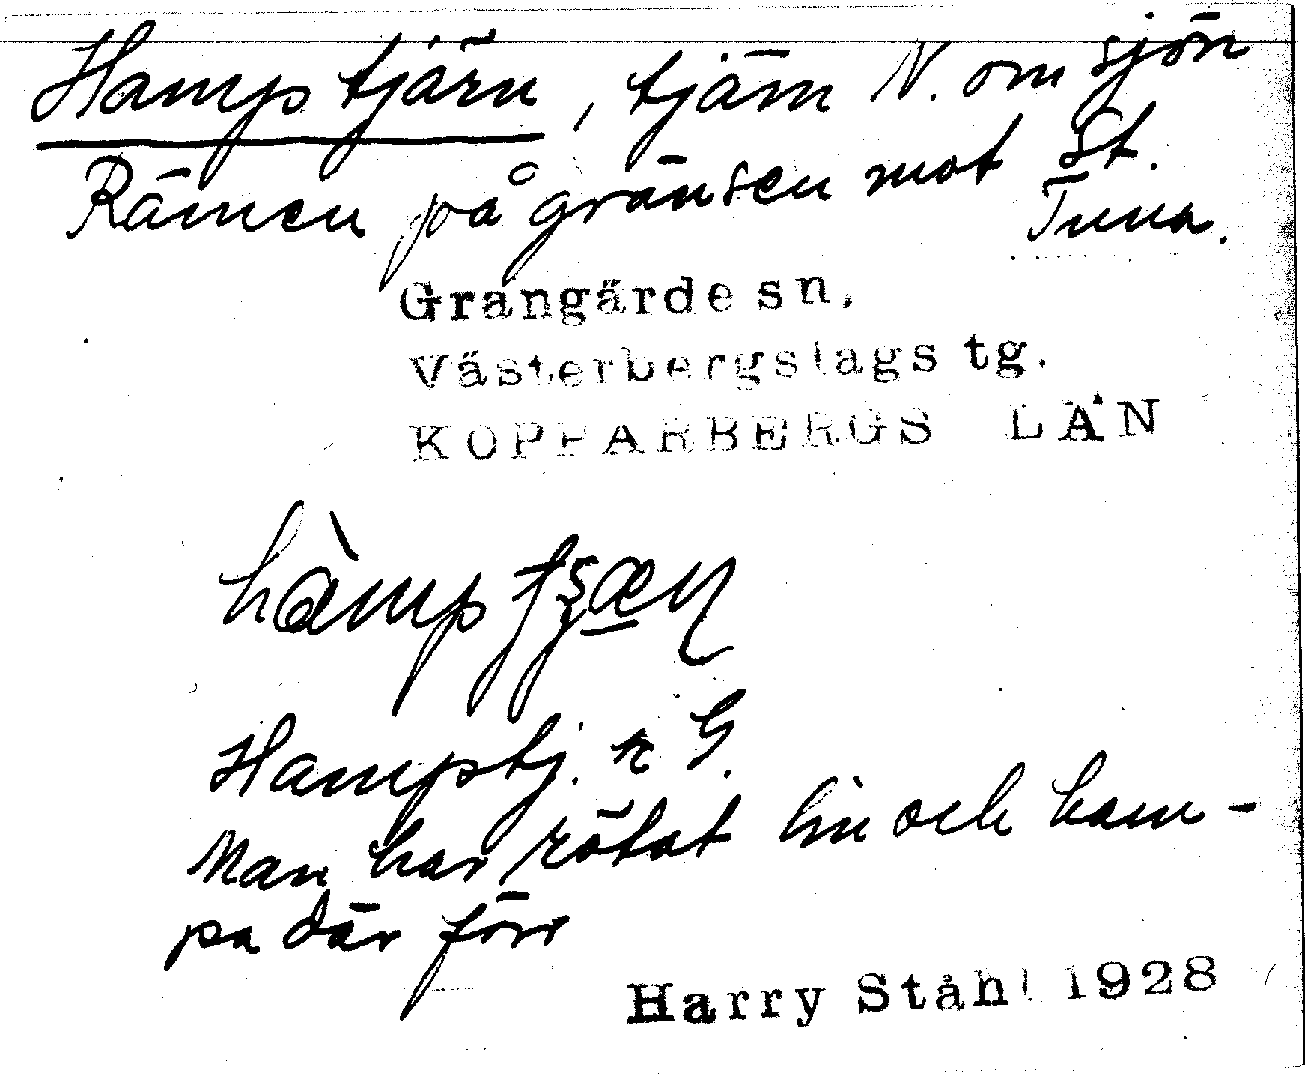 Hamptjärn, tjärn N. om sjön
Rämen på gränsen mot St.
Tuna.
Grangärde sn.
Västerbergslags tg.
KOPPARBERGS LÄN
Hampstj. n G.
Man har rötat lin och ham-
pa där förr
Harry Ståhl 1928